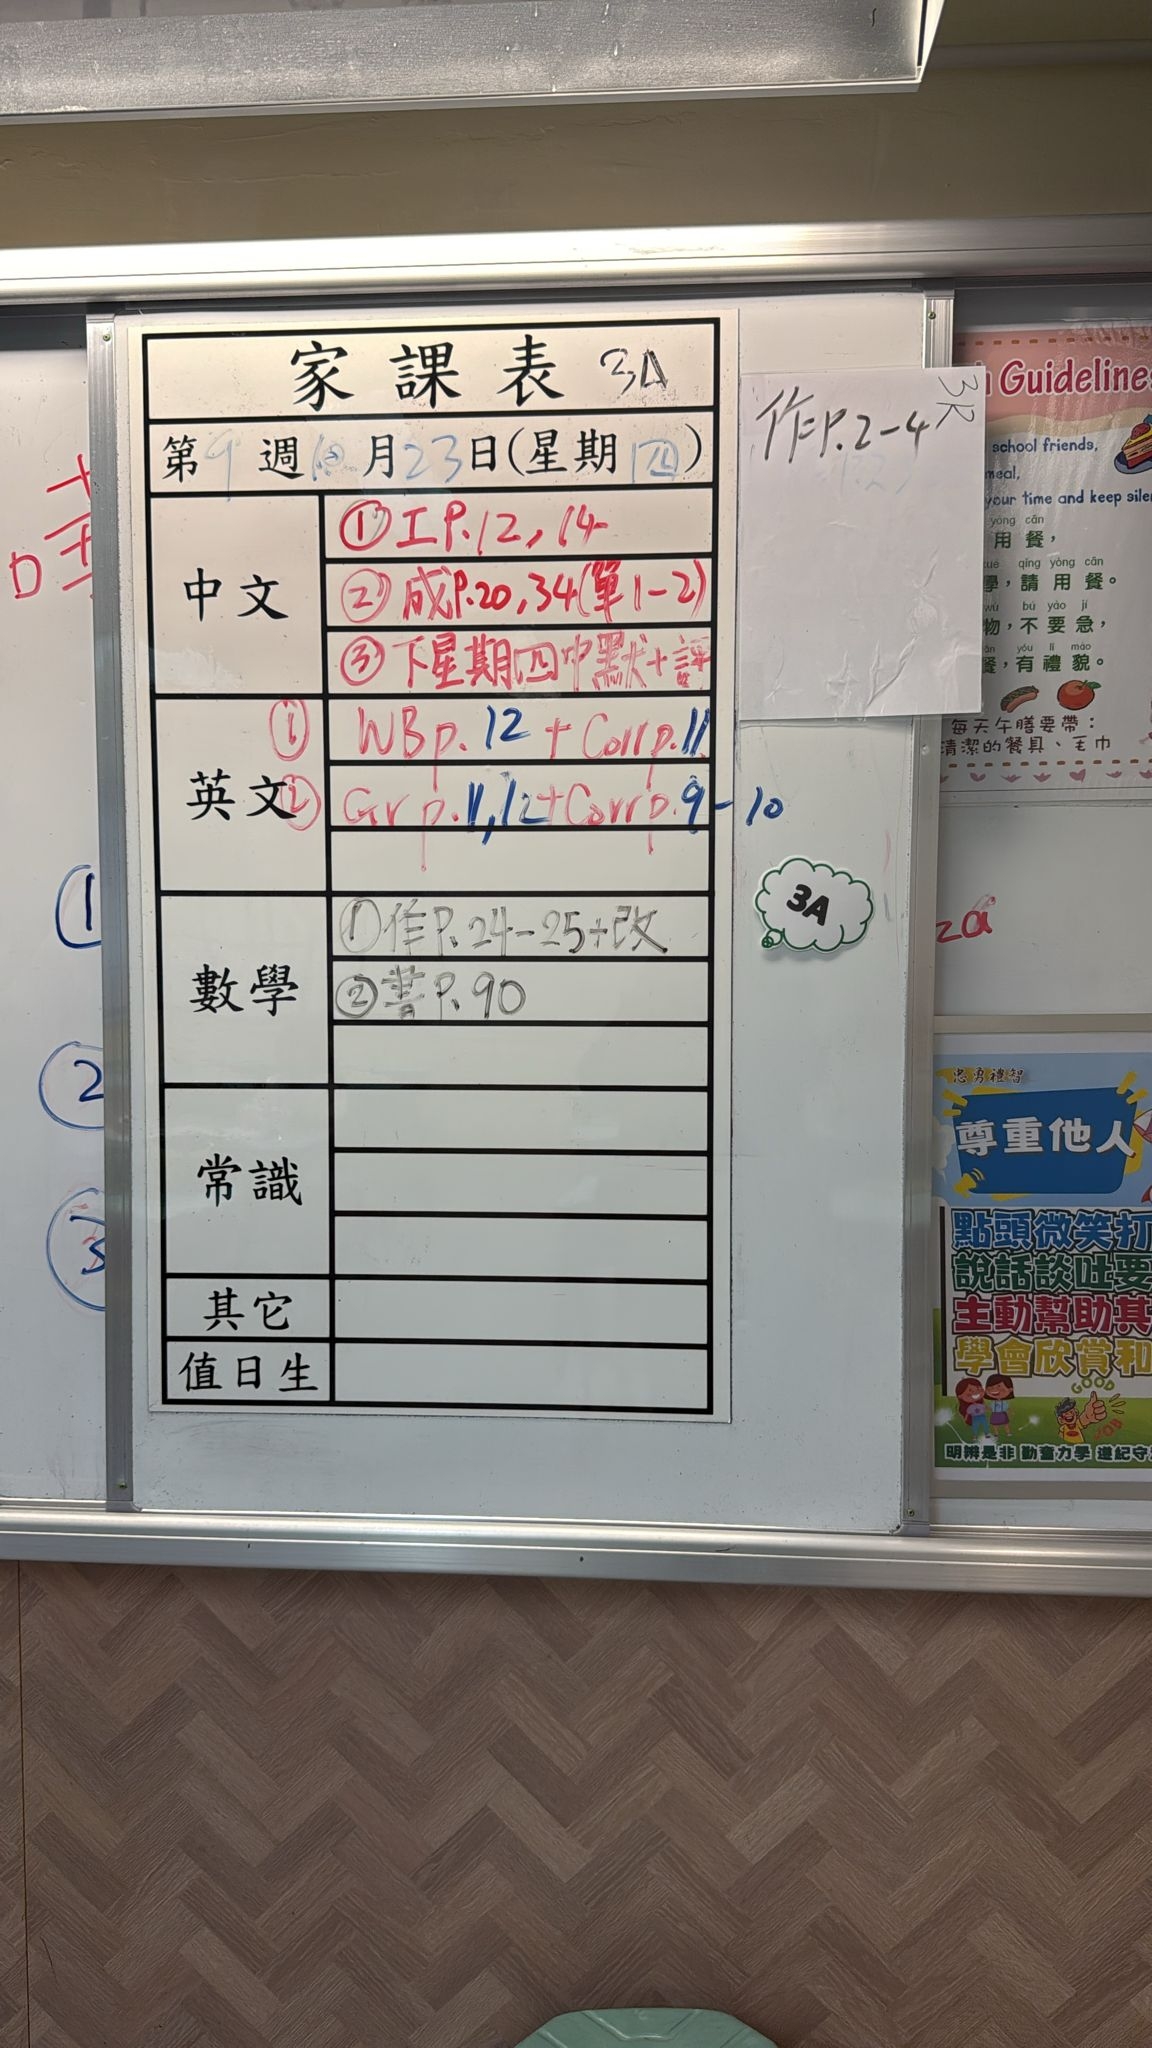 家課表 3A
第9週10月23日(星期四)
中文
①工P.12,14
②成P.20,34(單1-2)
③下星期四中默+評
英文
① WBp.12 + Corrp.11
② Gr p.11,12+Corrp.9-10
數學
①作P.24-25+改
②書P.90
常識
其它
值日生
作P.2-4
3R
3A
①
②
③
Guideline
school friends,
meal,
your time and keep
yòng cān
用餐,
qǐng yòng cān
學,請用餐。
wù bú yào jí
物,不要急,
yǒu lǐ mào
餐,有禮貌。
每天午膳要帶:
清潔的餐具、毛巾
忠勇禮智
尊重他人
點頭微笑打
說話談吐要
主動幫助其
學會欣賞和
GOOD
JOB
明辨是非 勤奮力學 遵紀守